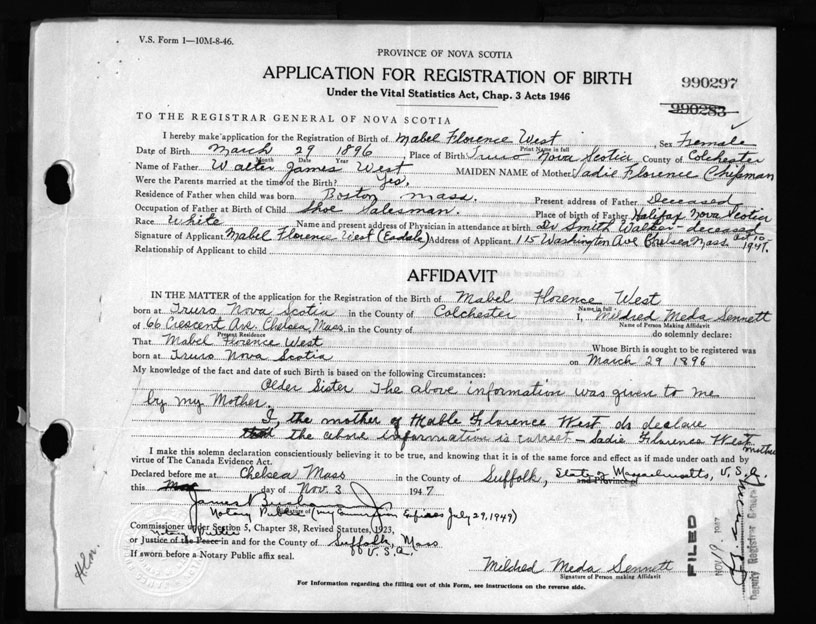 V.S. Form 1—10M-8-46.
PROVINCE OF NOVA SCOTIA
APPLICATION FOR REGISTRATION OF BIRTH
990297
Under the Vital Statistics Act, Chap. 3 Acts 1946
990283
TO THE REGISTRAR GENERAL OF NOVA SCOTIA
I hereby make application for the Registration of Birth of Mabel Florence West, Sex Female
Print Name in full
Date of Birth March 29 1896 Place of Birth Truro Nova Scotia County of Colchester
Month Date Year
Name of Father Walter James West MAIDEN NAME of Mother Sadie Florence Chipman
Were the Parents married at the time of the Birth? Yes.
Residence of Father when child was born Boston Mass. Present address of Father Deceased
Occupation of Father at Birth of Child Shoe Salesman. Place of birth of Father Halifax Nova Scotia
Race White Name and present address of Physician in attendance at birth Dr Smith Walker - deceased
Signature of Applicant Mabel Florence West (Eadale) Address of Applicant 115 Washington Ave Chelsea Mass. Oct 10 1947.
Relationship of Applicant to child
AFFIDAVIT
IN THE MATTER of the application for the Registration of the Birth of Mabel Florence West
Name in full
born at Truro Nova Scotia in the County of Colchester I, Mildred Meda Sennett
Name of Person Making Affidavit
of 66 Crescent Ave. Chelsea, Mass. in the County of do solemnly declare:
Present Residence
That Mabel Florence West Whose Birth is sought to be registered was
born at Truro Nova Scotia on March 29 1896
My knowledge of the fact and date of such Birth is based on the following Circumstances:
Older Sister The above information was given to me
by my Mother.
I, the mother of Mable Florence West do declare
that the above information is correct - Sadie Florence West
mother
I make this solemn declaration conscientiously believing it to be true, and knowing that it is of the same force and effect as if made under oath and by
virtue of The Canada Evidence Act.
Declared before me at Chelsea Mass in the County of Suffolk, State of Massachusetts, U.S.A.
and Province of
this day of Nov. 3 1947
James
Notary Public (my Commission Expires July 29, 1949)
Commissioner under Section 5, Chapter 38, Revised Statutes, 1923,
Notary Public
or Justice of the Peace in and for the County of Suffolk, Mass
of U.S.A.
If sworn before a Notary Public affix seal.
Mildred Meda Sennett
Signature of Person making Affidavit
For Information regarding the filling out of this Form, see instructions on the reverse side.
FILED
NOV 19 1947
Deputy Registrar General